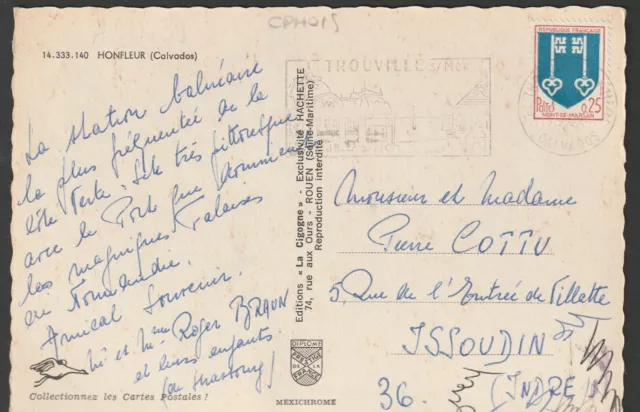 CPH015
14.333.140 HONFLEUR (Calvados)
La station balnéaire
la plus fréquentée de la
côte Verte. Site très pittoresque
avec le Port que dominent
les magnifiques Falaises
en Normandie.
Amical Souvenir.
Mr et Mme Roger BRAUN
et leurs enfants
(de Strasbourg)
Collectionnez les Cartes Postales !
Editions « La Cigogne » - Exclusivité HACHETTE
74, rue aux Ours - ROUEN (Seine-Maritime)
Reproduction interdite
DIPLOME
PRESTIGE
DE LA
FRANCE
MEXICHROME
TROUVILLE S/MER
CALVADOS
REPUBLIQUE FRANÇAISE
Postes 0,25
MONT-DE-MARSAN
Monsieur et Madame
Pierre COTTU
5 Rue de l'Entrée de Villette
ISSOUDIN
36. (INDRE)